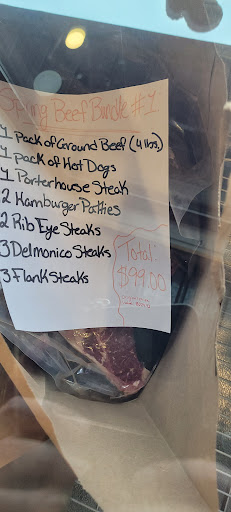 Spring Beef Bundle #1
1 pack of Ground Beef (4 lbs.)
1 pack of Hot Dogs
1 Porterhouse Steak
2 Hamburger Patties
2 Rib Eye Steaks
3 Delmonico Steaks
3 Flank Steaks
Total:
$99.00